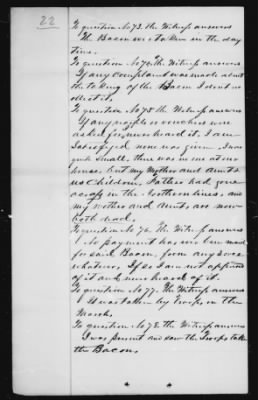 22
To question No 73. the Witness answers
The Bacon was taken in the day
time.
To question No 74. the Witness answers
If any complaint was made about
the taking of the Bacon I do not re
collect it.
To question No 75 the Witness answers
If any receipts or vouchers were
asked for I never heard it. I am
satisfied none was given. I was
quite small, there was no one at our
house but my Mother and Aunt &
us children. Father had gone
across in the Northern lines. and
my Mother and Aunt are now
both dead.
To question No 76. the Witness answers
No payment has ever been made
for said Bacon, from any source
whatever. If so I am not apprised
of it and never heard of it
To question No 77. the Witness answers
It was taken by troops, on the
March.
To question No 78. the Witness answers
I was present and saw the Troops take
the Bacon.